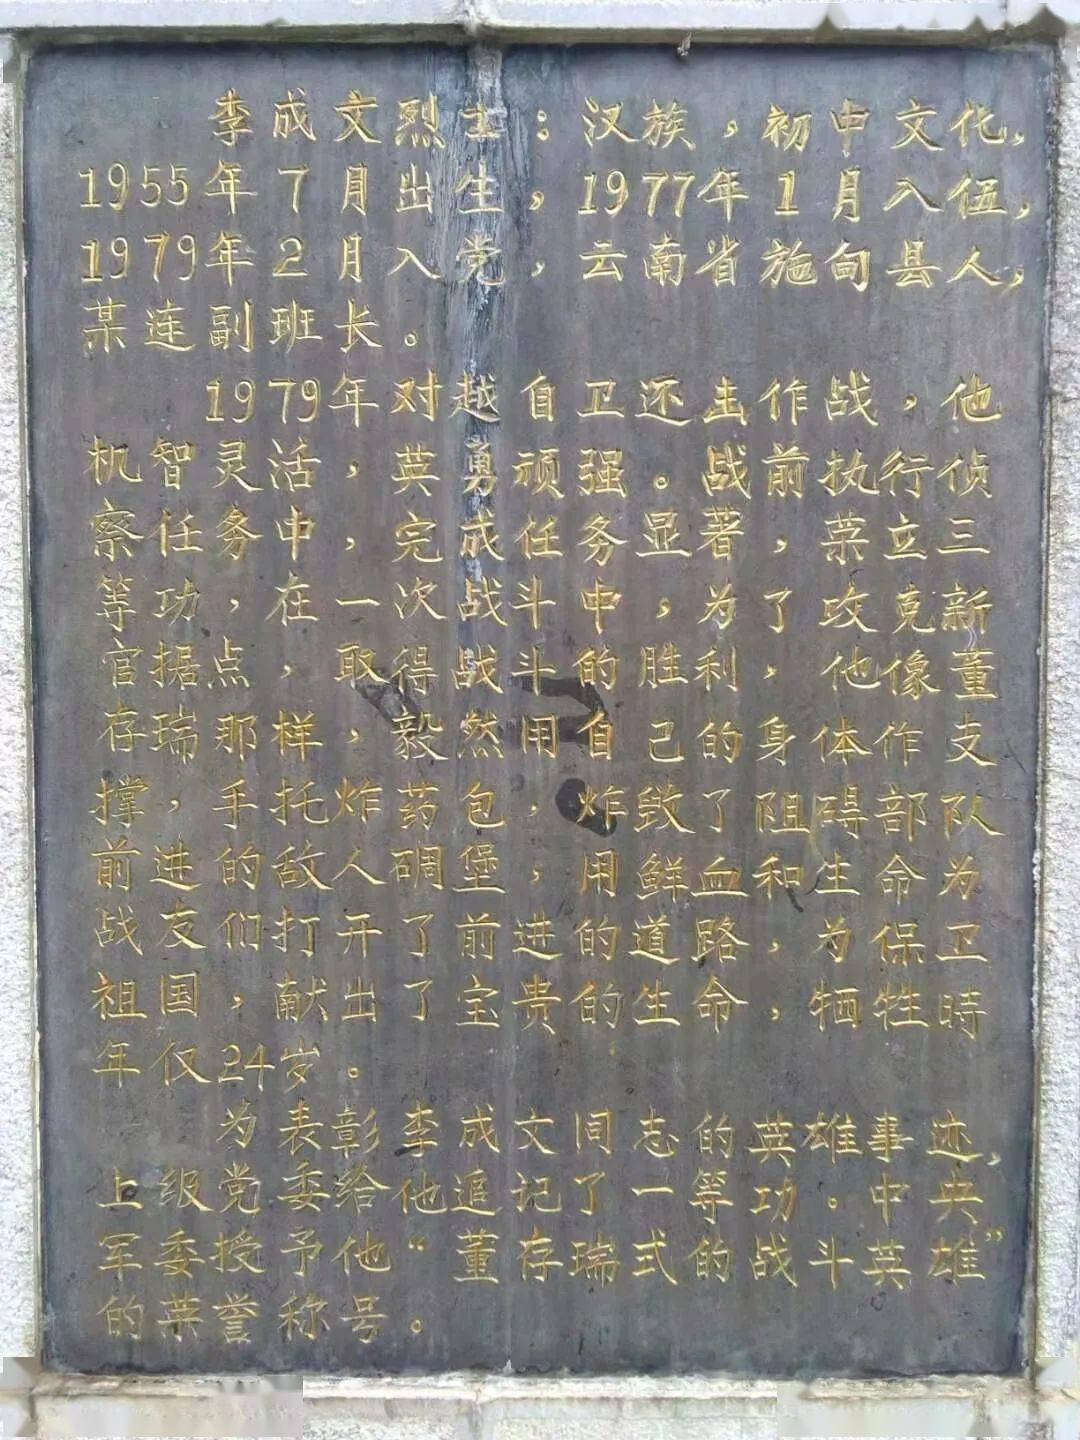 李成文烈士：汉族，初中文化，
1955年7月出生，1977年1月入伍，
1979年2月入党，云南省施甸县人，
某连副班长。
1979年对越自卫还击作战，他
机智灵活，英勇顽强。战前执行侦
察任务中，完成任务显著，荣立三
等功，在一次战斗中，为了攻克新
官据点，取得战斗的胜利，他像董
存瑞那样，毅然用自己的身体作支
撑，手托炸药包，炸毁了阻碍部队
前进的敌人碉堡，用鲜血和生命为
战友们打开了前进的道路，为保卫
祖国，献出了宝贵的生命，牺牲時
年仅24岁。
为表彰李成文同志的英雄事迹，
上级党委给他追记了一等功。中央
军委授予他“董存瑞式的战斗英雄”
的荣誉称号。